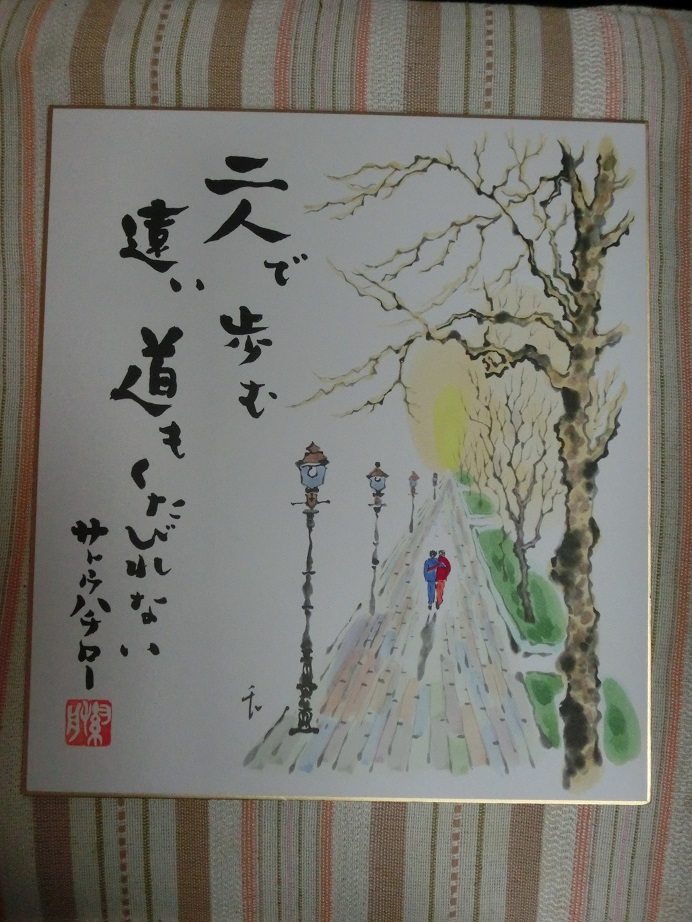 二人で歩む
遠い道もくたびれない
サトウハチロー